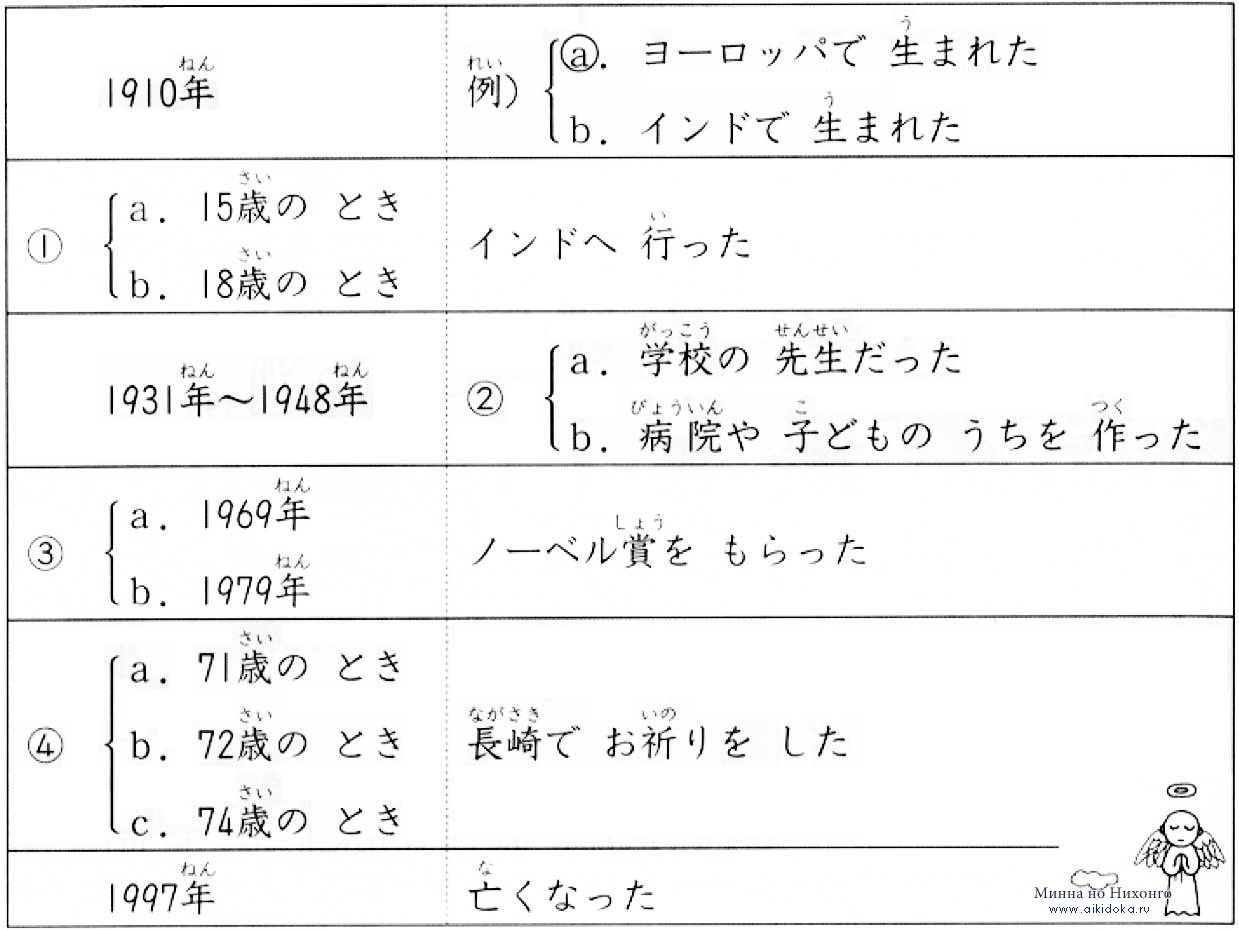 ねん
1910年
れい
例)
う
ⓐ. ヨーロッパで 生まれた
う
b. インドで 生まれた
①
さい
a. 15歳の とき
さい
b. 18歳の とき
い
インドへ 行った
ねん ねん
1931年〜1948年
②
がっこう せんせい
a. 学校の 先生だった
びょういん こ つく
b. 病院や 子どもの うちを 作った
③
ねん
a. 1969年
ねん
b. 1979年
しょう
ノーベル賞を もらった
④
さい
a. 71歳の とき
さい
b. 72歳の とき
さい
c. 74歳の とき
ながさき いの
長崎で お祈りを した
ねん
1997年
な
亡くなった
Минна но Нихонго
www.aikidoka.ru